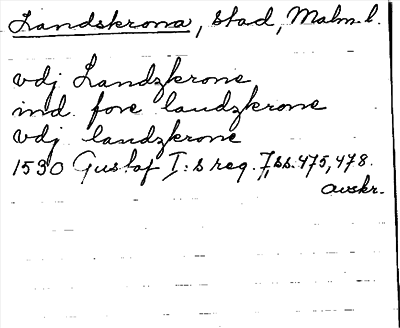 Landskrona, Stad, Malm. l.
vdj Landzkrone
ind. fore landzkrone
vdj landzkrone
1530 Gustaf I:s reg. 7, ss. 475, 478.
avskr.